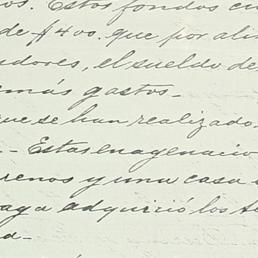 os. Estos fondos cu
de $400. que por ali
dores, el sueldo de
emás gastos_
que se han realizado.
_ Estas enagenacio
renos y una casa
aga adquirió los te
a_